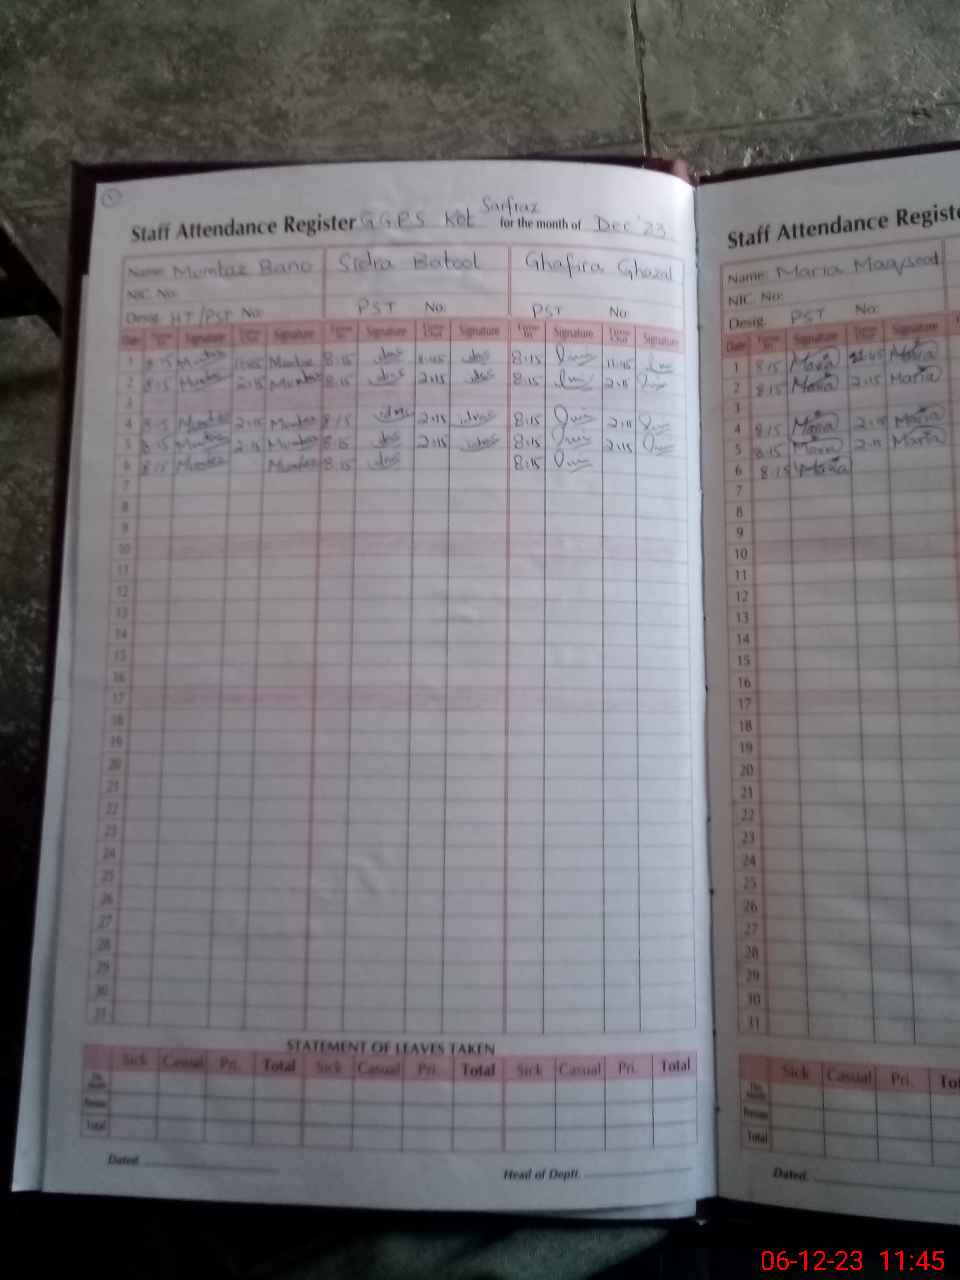 Staff Attendance Register GGPS Kot Sarfraz for the month of Dec'23
Name Mumtaz Bano Sidra Batool Ghafira Ghazal
NIC. No:
Desig. HT/PST No: PST No: PST No:
Date Signature Signature Signature Signature Signature Signature
1 8:15 Mumtaz 11:45 Mumtaz 8:15 11:45 8:15 11:45
2 8:15 Mumtaz 2:15 Mumtaz 8:15 2:15 8:15 2:15
3
4 8:15 Mumtaz 2:15 Mumtaz 8:15 2:15 8:15 2:15
5 8:15 Mumtaz 2:15 Mumtaz 8:15 2:15 8:15 2:15
6 8:15 Mumtaz Mumtaz 8:15 8:15
7
8
9
10
11
12
13
14
15
16
17
18
19
20
21
22
23
24
25
26
27
28
29
30
31
STATEMENT OF LEAVES TAKEN
Sick Casual Pri. Total Sick Casual Pri. Total Sick Casual Pri. Total
Total
Dated.
Head of Deptt.
Staff Attendance Registe
Name Maria Maqsood
NIC. No:
Desig. PST No:
Date Signature Signature
1 8:15 Maria 11:45 Maria
2 8:15 Maria 2:15 Maria
3
4 8:15 Maria 2:15 Maria
5 8:15 Maria 2:15 Maria
6 8:15 Maria
7
8
9
10
11
12
13
14
15
16
17
18
19
20
21
22
23
24
25
26
27
28
29
30
31
Sick Casual Pri. Tot
Total
Dated.
06-12-23 11:45